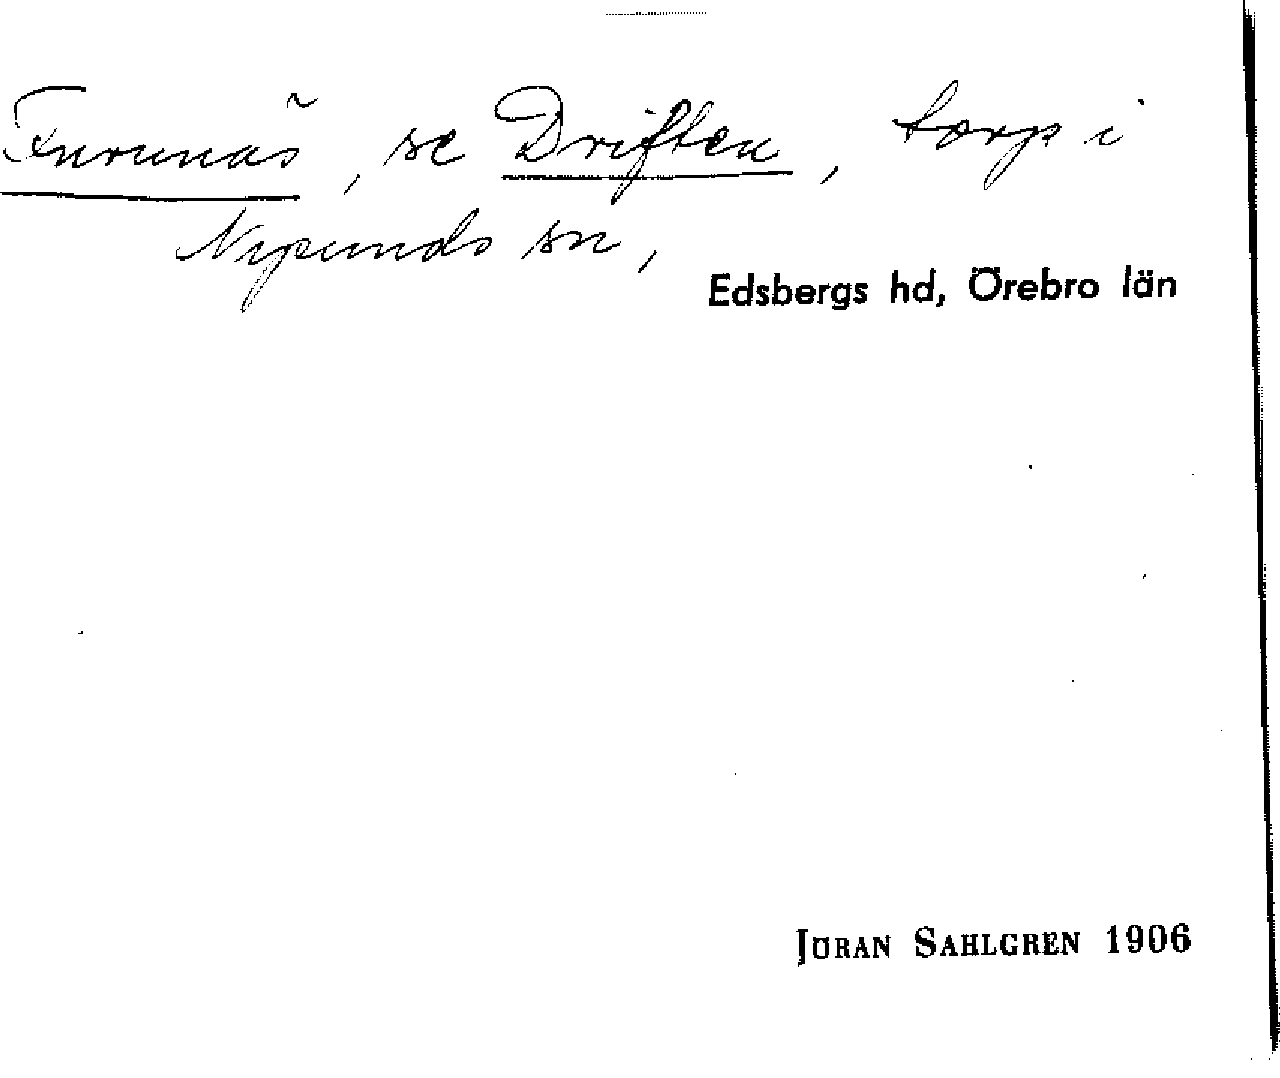 Furunäs, se Driften, torp i
Nysunds sn,
Edsbergs hd, Örebro län
JÖRAN SAHLGREN 1906